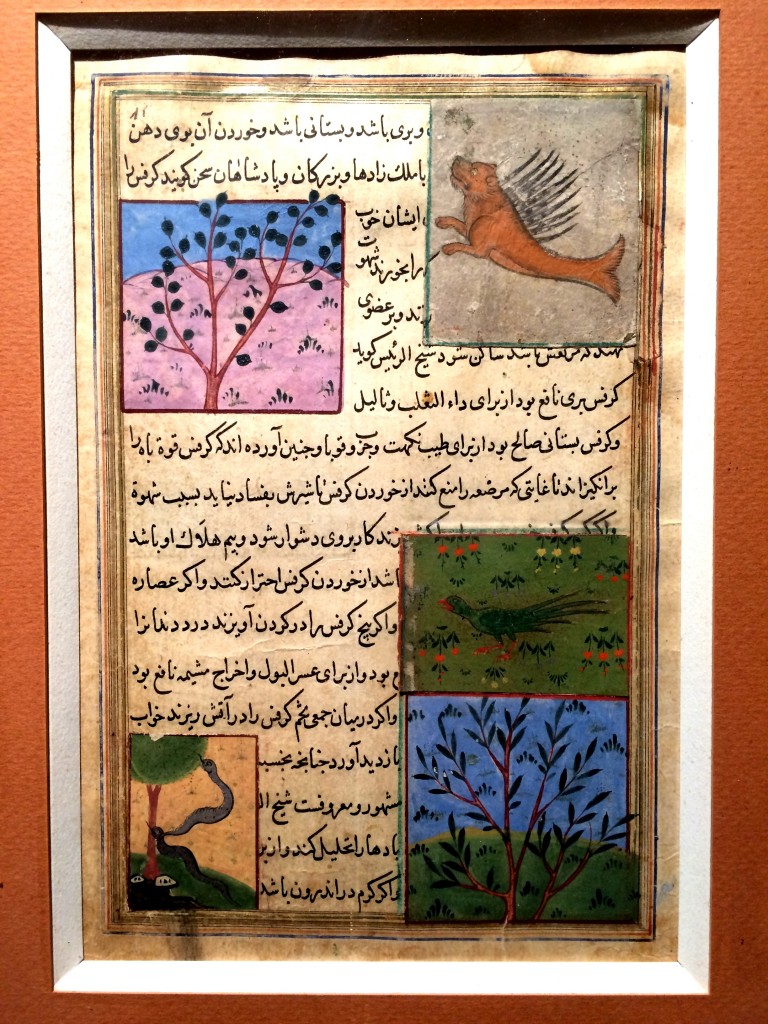 و بری باشد و بستانی باشد و خوردن آن بوی دهن
با ملک زادها و بزرکان و پادشاهان سخن کویند کرفس را
ایشان خواب
را بخورند شهوت
ند و بر عضوی
باشد ساکن شود شیخ الرئیس کوید
کرفس بری نافع بود از برای داء الثعلب و ثالیل
و کرفس بستانی صالح بود از برای طیب نکهت و جرب و قوبا و جنین آورده اند که کرفس قوة باه را
برانکیزاند تا غایتی که مرضعه را منع کنند از خوردن کرفس تا شیرش بفساد نیاید بسبب شهوة
زند کار بروی دشوار شود و بیم هلاک او باشد
باشد از خوردن کرفس احتراز کنند و اکر عصاره
و اکر بیخ کرفس را در کردن آویزند درد دندانرا
بود و از برای عسر البول و اخراج مشیمه نافع بود
و اکر در میان جمعی تخم کرفس را در آتش ریزند خواب
بازدید آورد جنانجه بخسبد
مشهور و معروفست شیخ ال
بادها را تحلیل کند و از بر
و اکر کرم در اندرون باشد